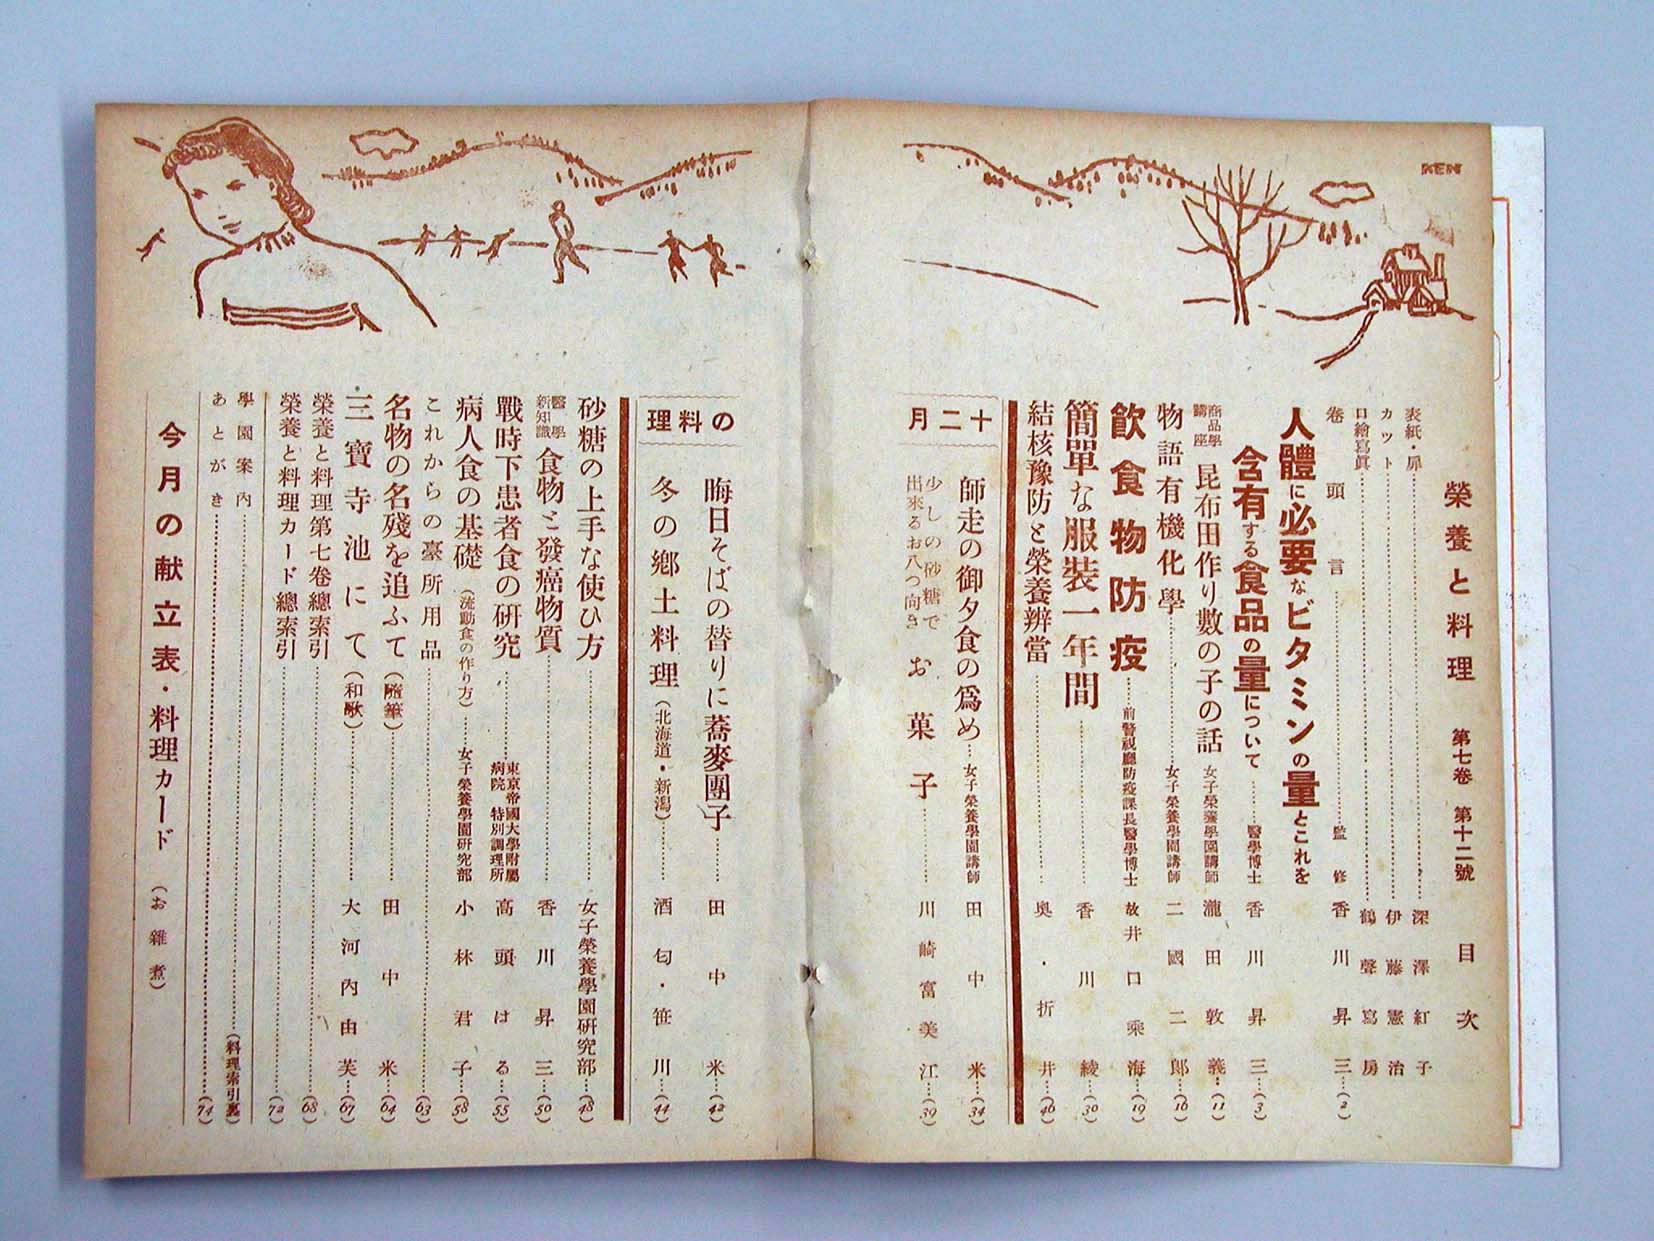 KEN
榮養と料理 第七卷 第十二號 目次
表紙・扉 深澤紅子
カット 伊藤憲治
口繪寫眞 鶴聲寫房
卷頭言 監修 香川昇三 (2)
人體に必要なビタミンの量とこれを
含有する食品の量について 醫學博士 香川昇三 (3)
商品學講座 昆布田作り數の子の話 女子榮養學園講師 瀧田敦義 (11)
物語有機化學 女子榮養學園講師 二國二郞 (16)
飮食物防疫 前警視廳防疫課長醫學博士 故井口乘海 (19)
簡單な服裝一年間 香川綾 (30)
結核豫防と榮養辨當 奧・折井 (46)
十二月の料理
師走の御夕食の爲め 女子榮養學園講師 田中米 (34)
少しの砂糖で出來るお八つ向き お菓子 川崎富美江 (39)
晦日そばの替りに蕎麥團子 田中米 (42)
冬の鄕土料理(北海道・新潟) 酒匂・笹川 (44)
砂糖の上手な使ひ方 女子榮養學園硏究部 (48)
醫學新知識 食物と發癌物質 香川昇三 (50)
戰時下患者食の硏究 東京帝國大學附屬病院 特別調理所 高頭はる (55)
病人食の基礎(流動食の作り方) 女子榮養學園硏究部 小林君子 (58)
これからの臺所用品 (63)
名物の名殘を追ふて(隨筆) 田中米 (64)
三寶寺池にて(和歌) 大河內由芙 (67)
榮養と料理第七卷總索引 (68)
榮養と料理カード總索引 (72)
學園案內 (料理索引裏)
あとがき (74)
今月の献立表・料理カード(お雜煮)